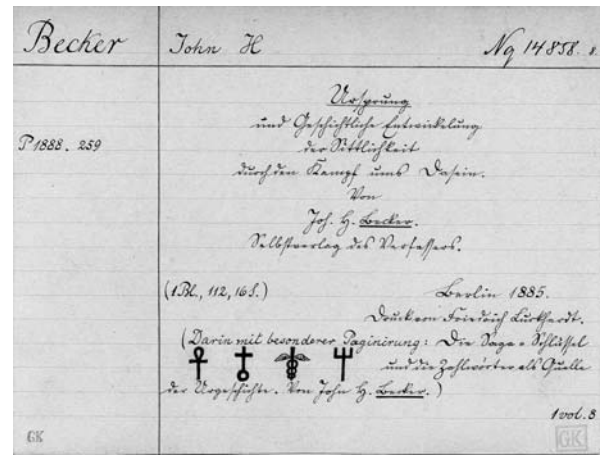 Becker John H Nq 14858. 8.
Ursprung
und Geschichtliche Entwickelung
P 1888. 259
der Sittlichkeit
durch den Kampf ums Dasein.
Von
Joh. H. Becker.
Selbstverlag des Verfassers.
(1 Bl., 112, 16 S.) Berlin 1885.
Druck von Friedrich Luckhardt.
(Darin mit besonderer Paginirung: Die Sage = Schlüssel
und die Zahlwörter als Quelle
der Urgeschichte. Von John H. Becker.)
1 vol. 8
GK GK